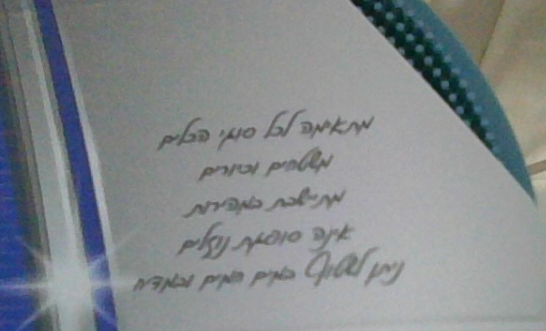 מתאימה לכל סוגי הכלים
משטחים וכיורים
מתייבשת במהירות
אינה סופגת נוזלים
ניתן לשטוף במים חמים ובמדיח